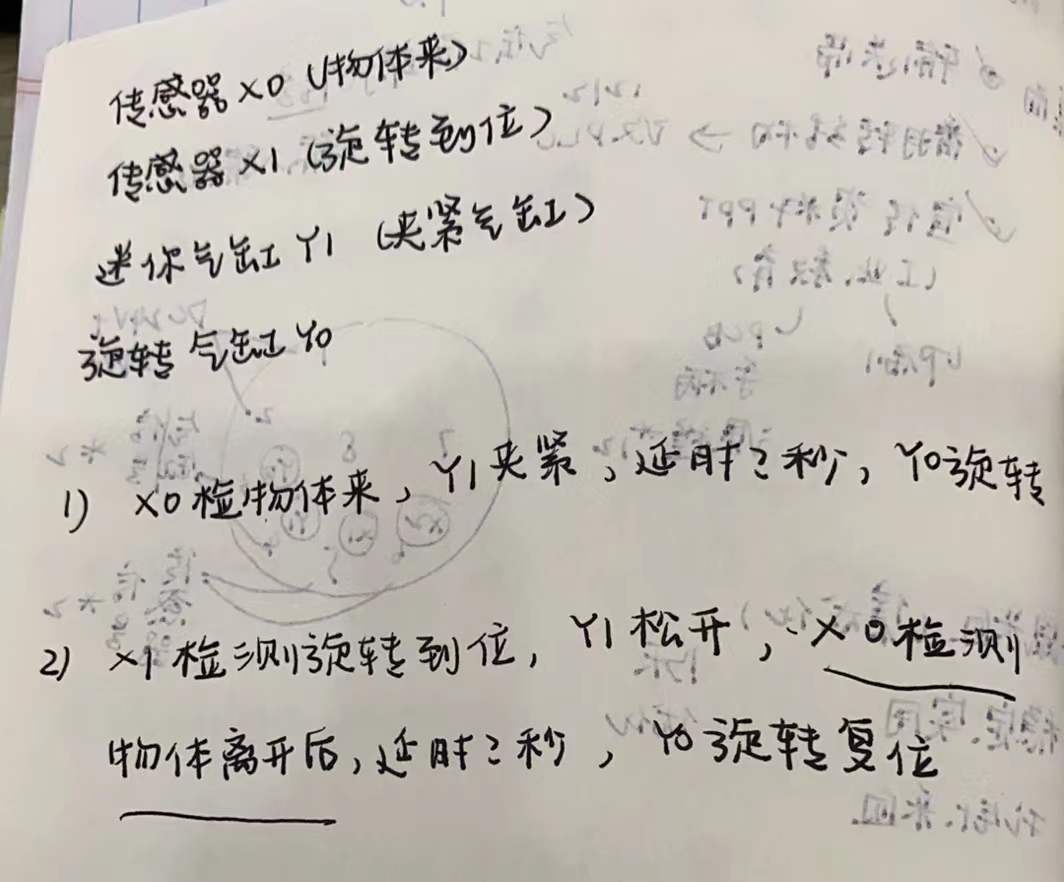 传感器 X0 (物体来)
传感器 X1 (旋转到位)
迷你气缸 Y1 (夹紧气缸)
旋转气缸 Y0
1) X0 检物体来, Y1 夹紧, 延时2秒, Y0旋转
2) X1 检测旋转到位, Y1 松开, X0检测
物体离开后, 延时2秒, Y0 旋转复位